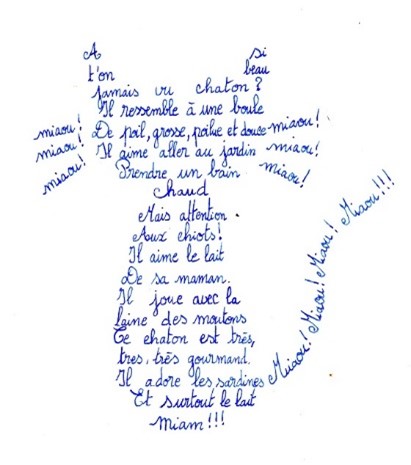 A si
t'on beau
jamais vu chaton ?
Il ressemble à une boule
miaou ! De poil, grosse, poilue et douce miaou !
miaou ! Il aime aller au jardin miaou !
miaou ! Prendre un bain miaou !
Chaud
Mais attention.
Aux chiots !
Il aime le lait
De sa maman.
Il joue avec la
laine des moutons
Ce chaton est très,
tres, très gourmand.
Il adore les sardines Miaou ! Miaou ! Miaou ! Miaou !!!
Et surtout le lait
Miam !!!